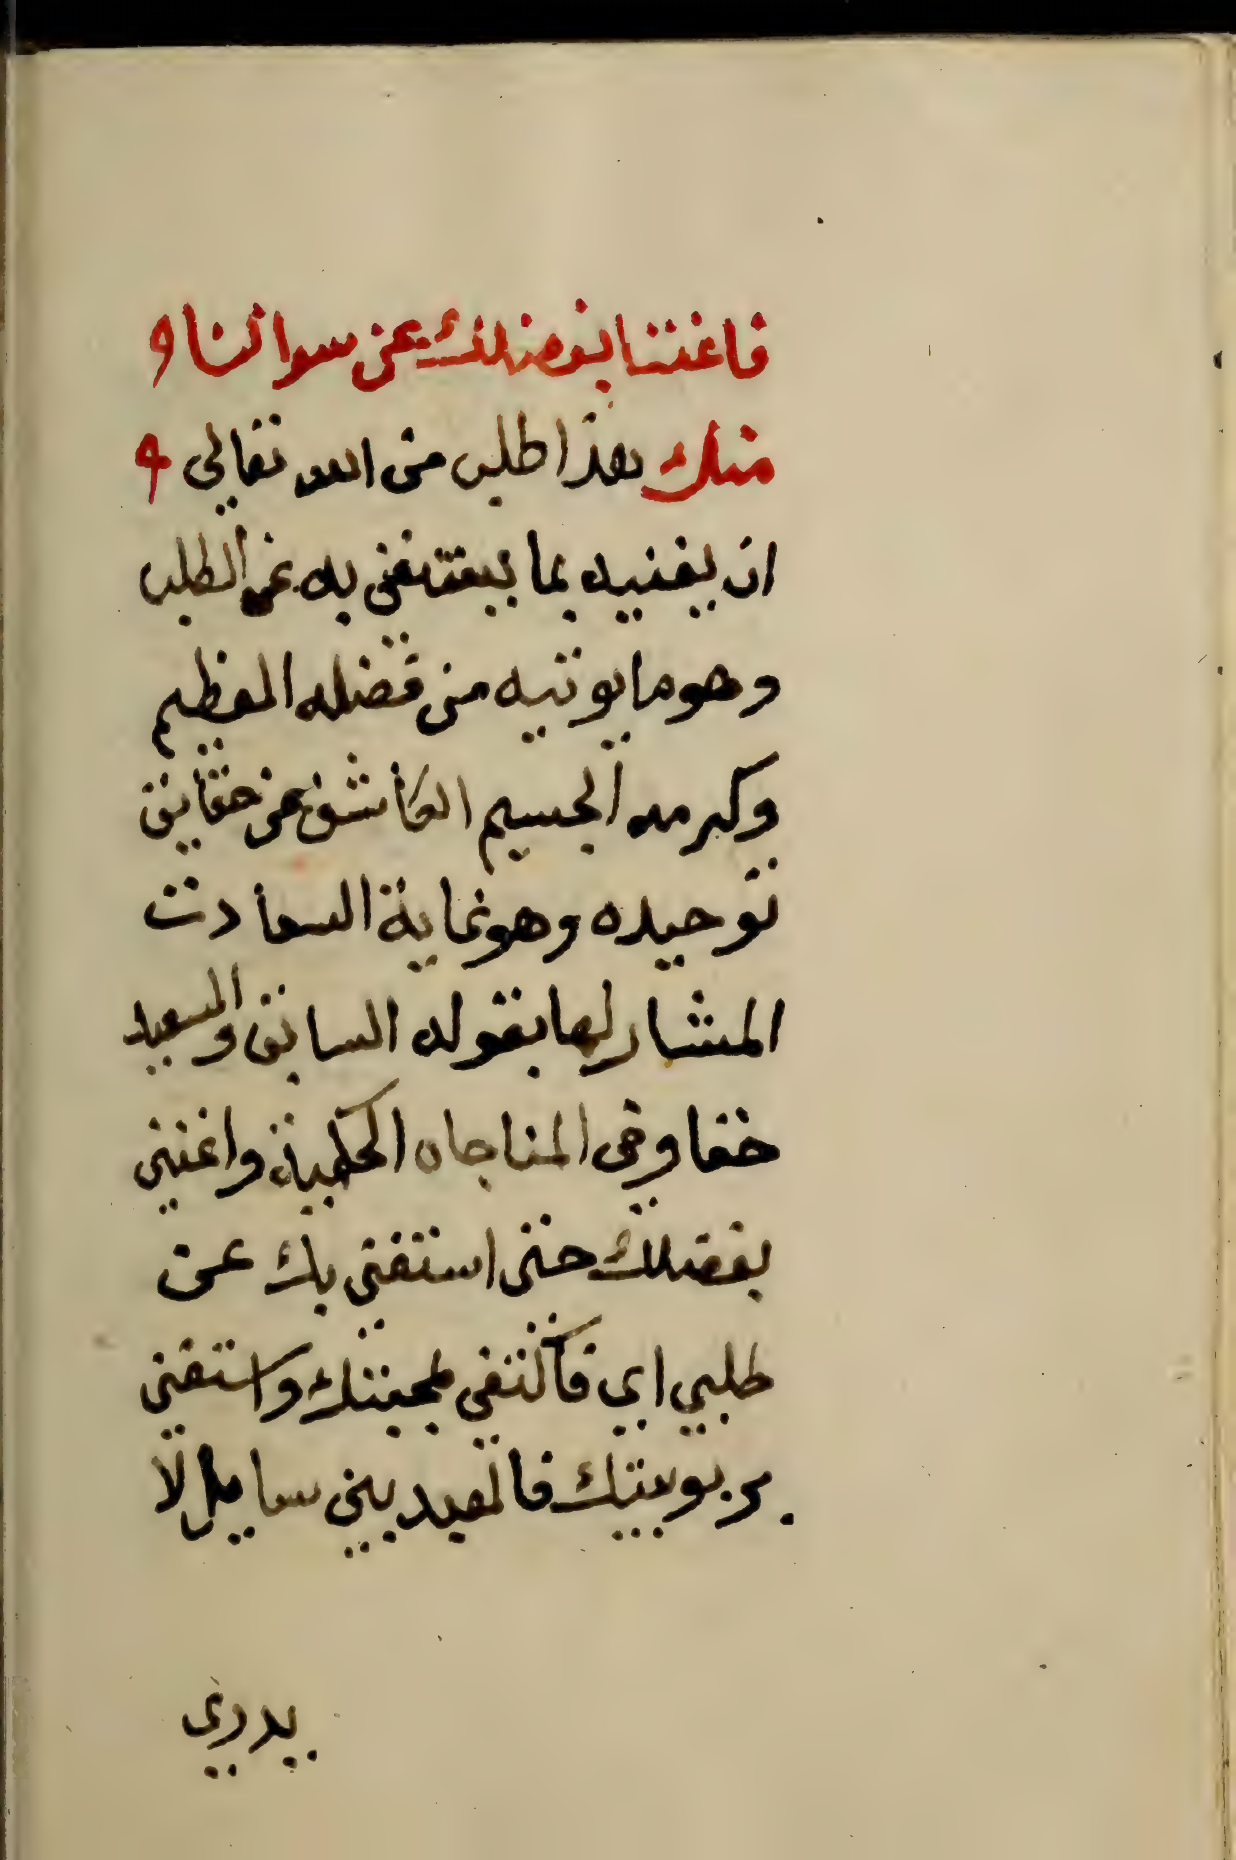 فاغننا بفضلك عن سوالنا
منك هذا طلب من الله تعالى
ان يغنيه بما يستغنى به عن الطلب
وهو ما يوتيه من فضله العظيم
وكرمه الجسيم الكاشف عن حقايق
توحيده وهو نهاية السعادت
المشار لها بقوله السابق والسعيد
حقا وفى المناجاه الحكمية واغننى
بفضلك حتى استغنى بك عن
طلبي اي فاكتفى بمحبتك واستغنى
بربوبيتك فالعبد بين سايل لا
يدري